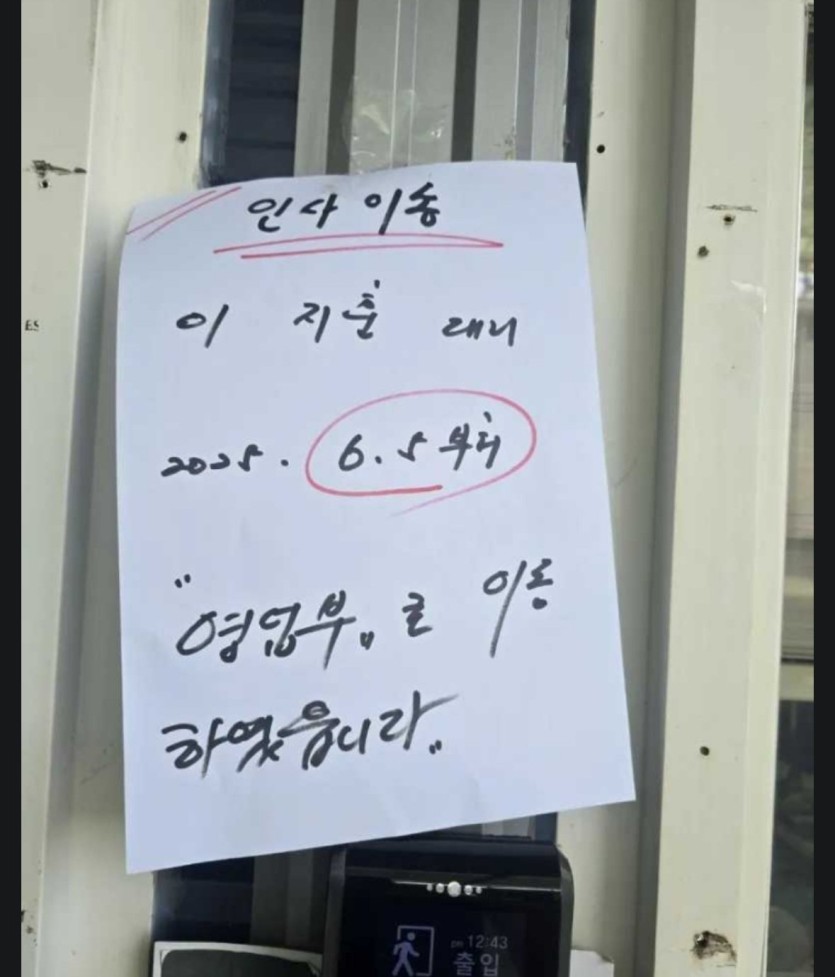 인사 이송
이 지훈 대리
2025. 6.5 부터
"영업부" 로 이동
하였읍니다"
ES
pm 12:43
출입